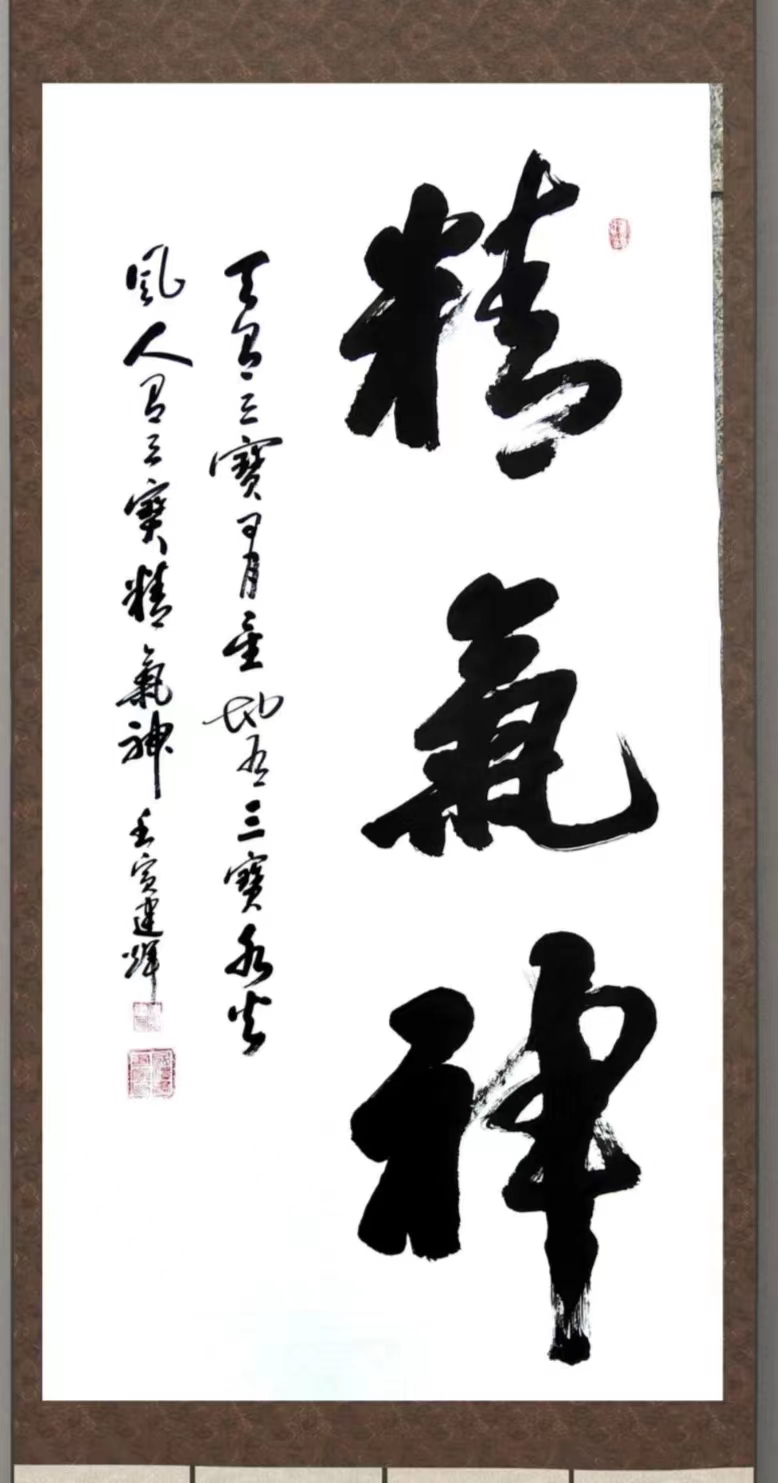 精氣神
天有三寶日月星地有三寶水火
風人有三寶精氣神壬寅建輝